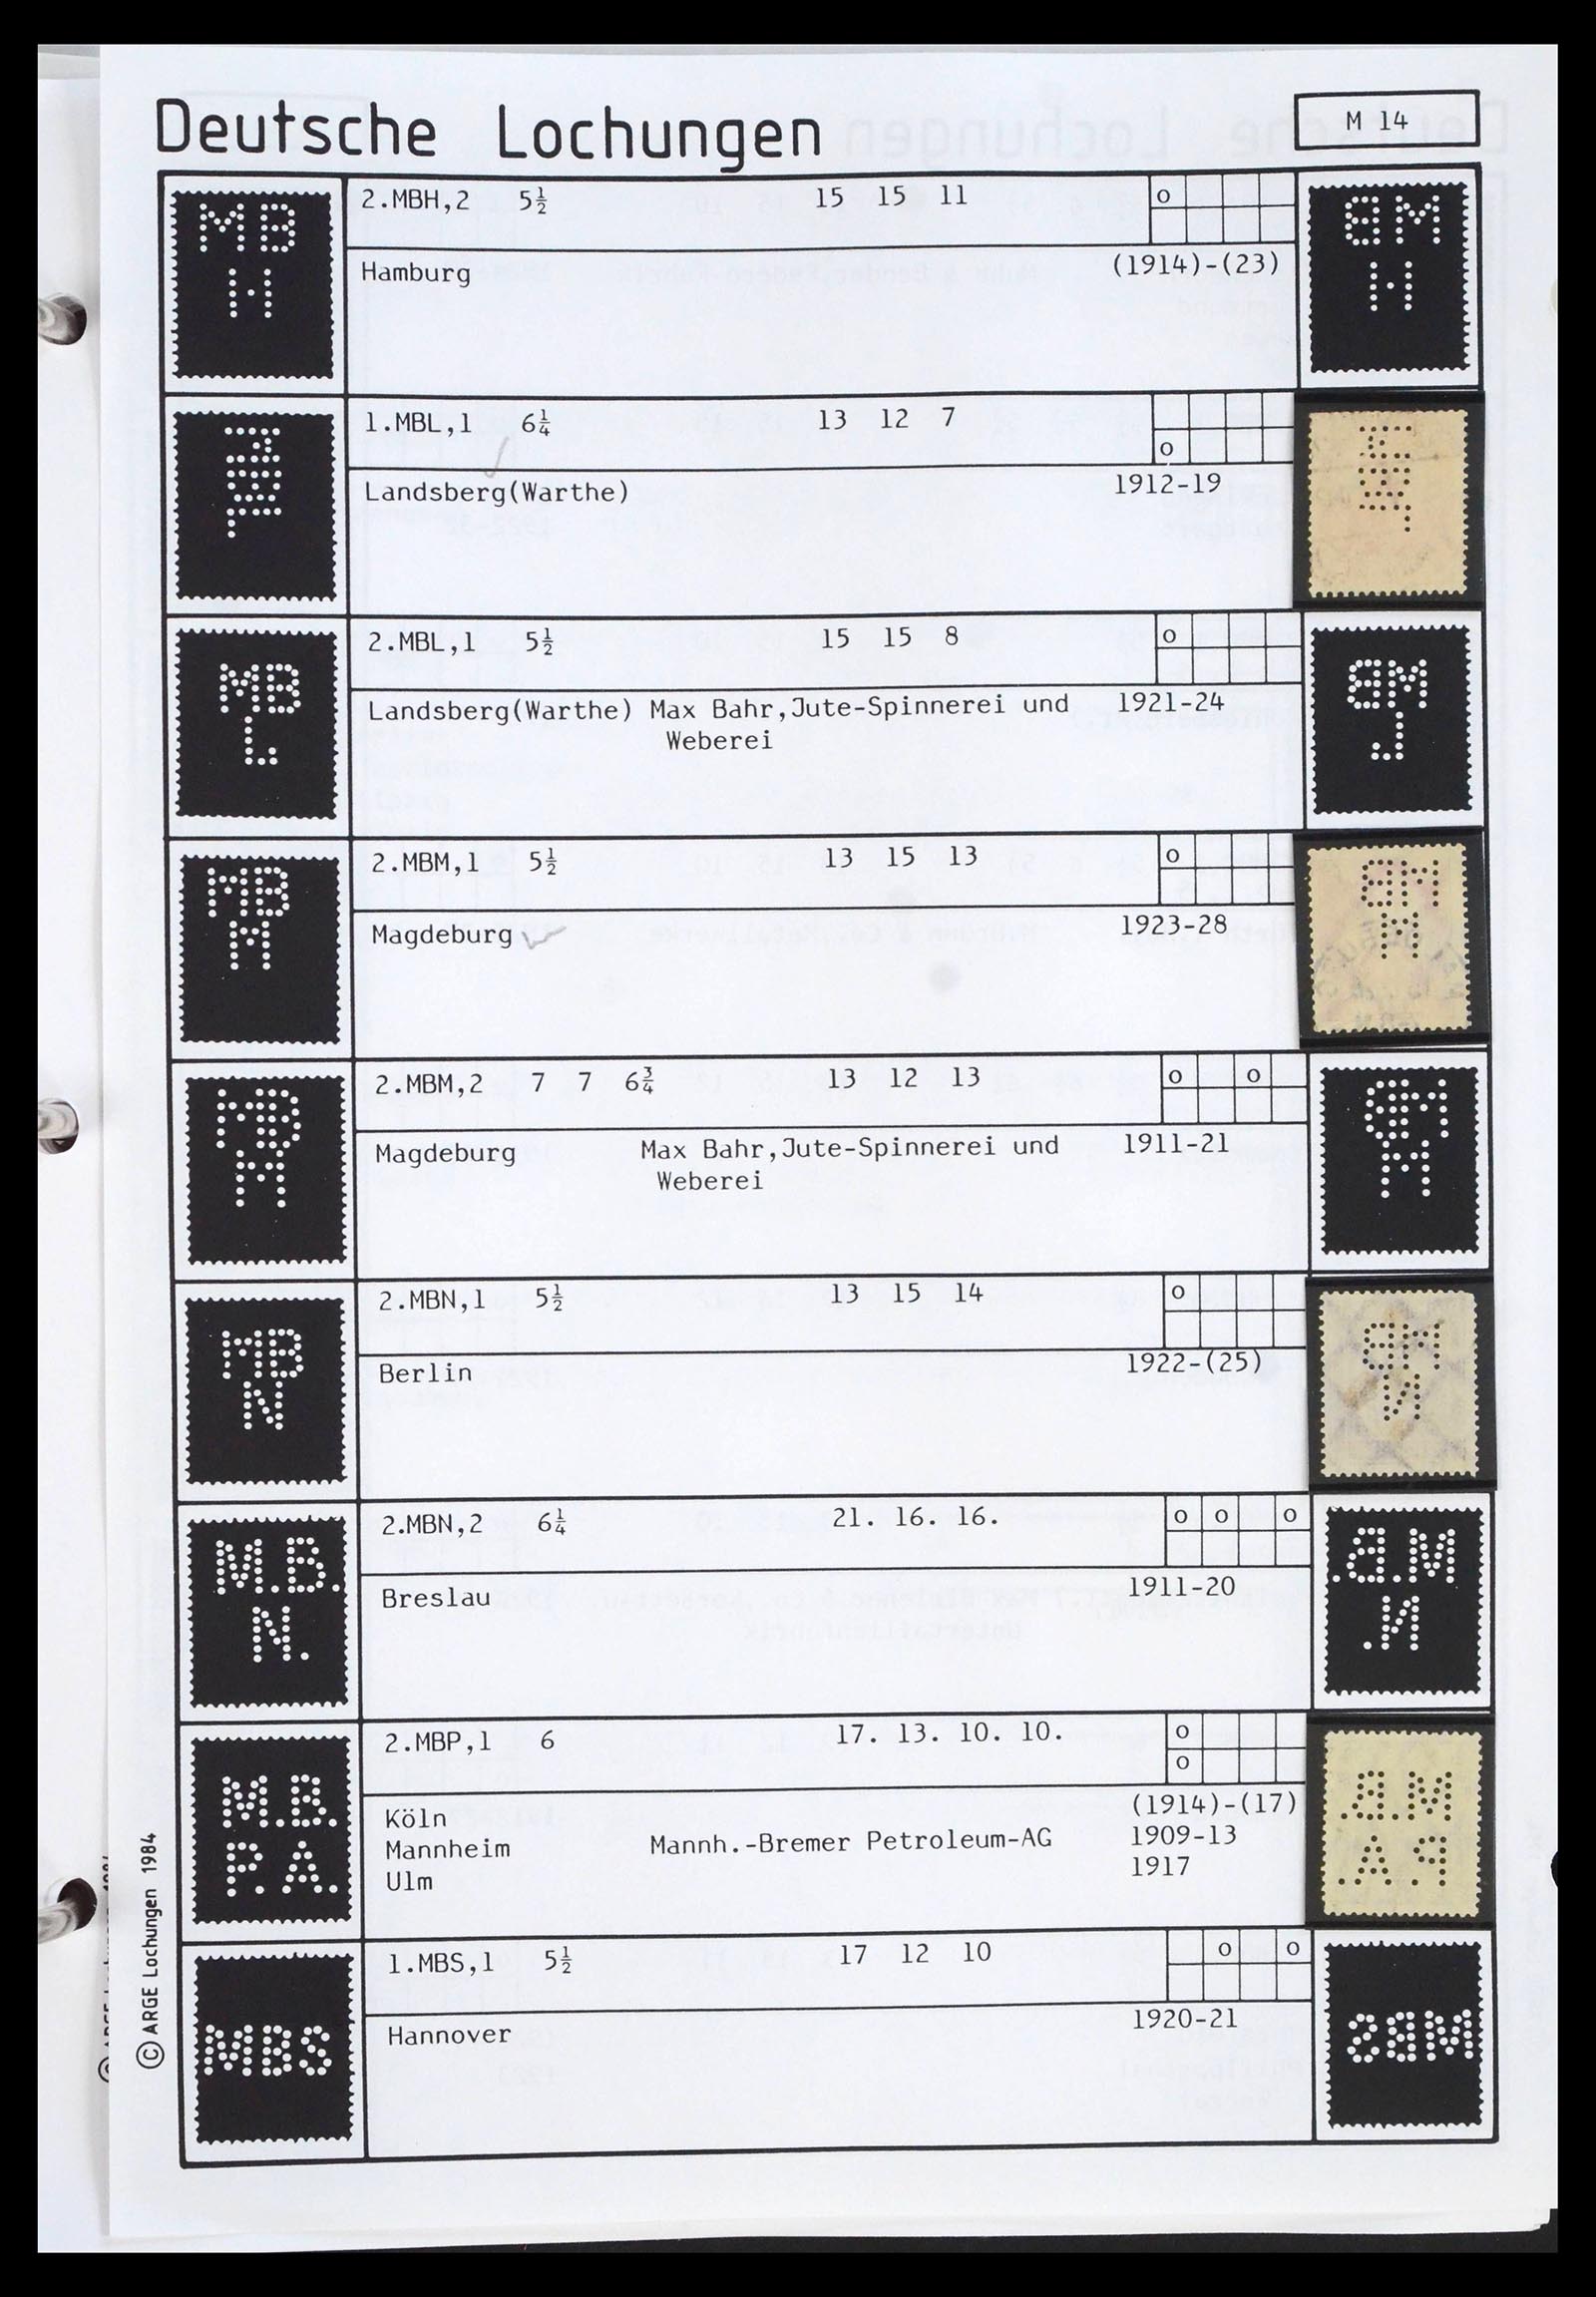 Deutsche Lochungen
M 14
MB
H
2.MBH,2 5½ 15 15 11 o
Hamburg (1914)-(23)
MBL
1.MBL,1 6¼ 13 12 7
o
Landsberg(Warthe) 1912-19
MB
L
2.MBL,1 5½ 15 15 8 o
Landsberg(Warthe) Max Bahr,Jute-Spinnerei und 1921-24
Weberei
MB
M
2.MBM,1 5½ 13 15 13 o
Magdeburg 1923-28
MB
M
2.MBM,2 7 7 6¾ 13 12 13 o o
Magdeburg Max Bahr,Jute-Spinnerei und 1911-21
Weberei
MB
N
2.MBN,1 5½ 13 15 14 o
Berlin 1922-(25)
M.B.
N.
2.MBN,2 6¼ 21. 16. 16. o o o
Breslau 1911-20
M.B.
P.A.
2.MBP,1 6 17. 13. 10. 10. o
o
Köln (1914)-(17)
Mannheim Mannh.-Bremer Petroleum-AG 1909-13
Ulm 1917
MBS
1.MBS,1 5½ 17 12 10 o o
Hannover 1920-21
© ARGE Lochungen 1984